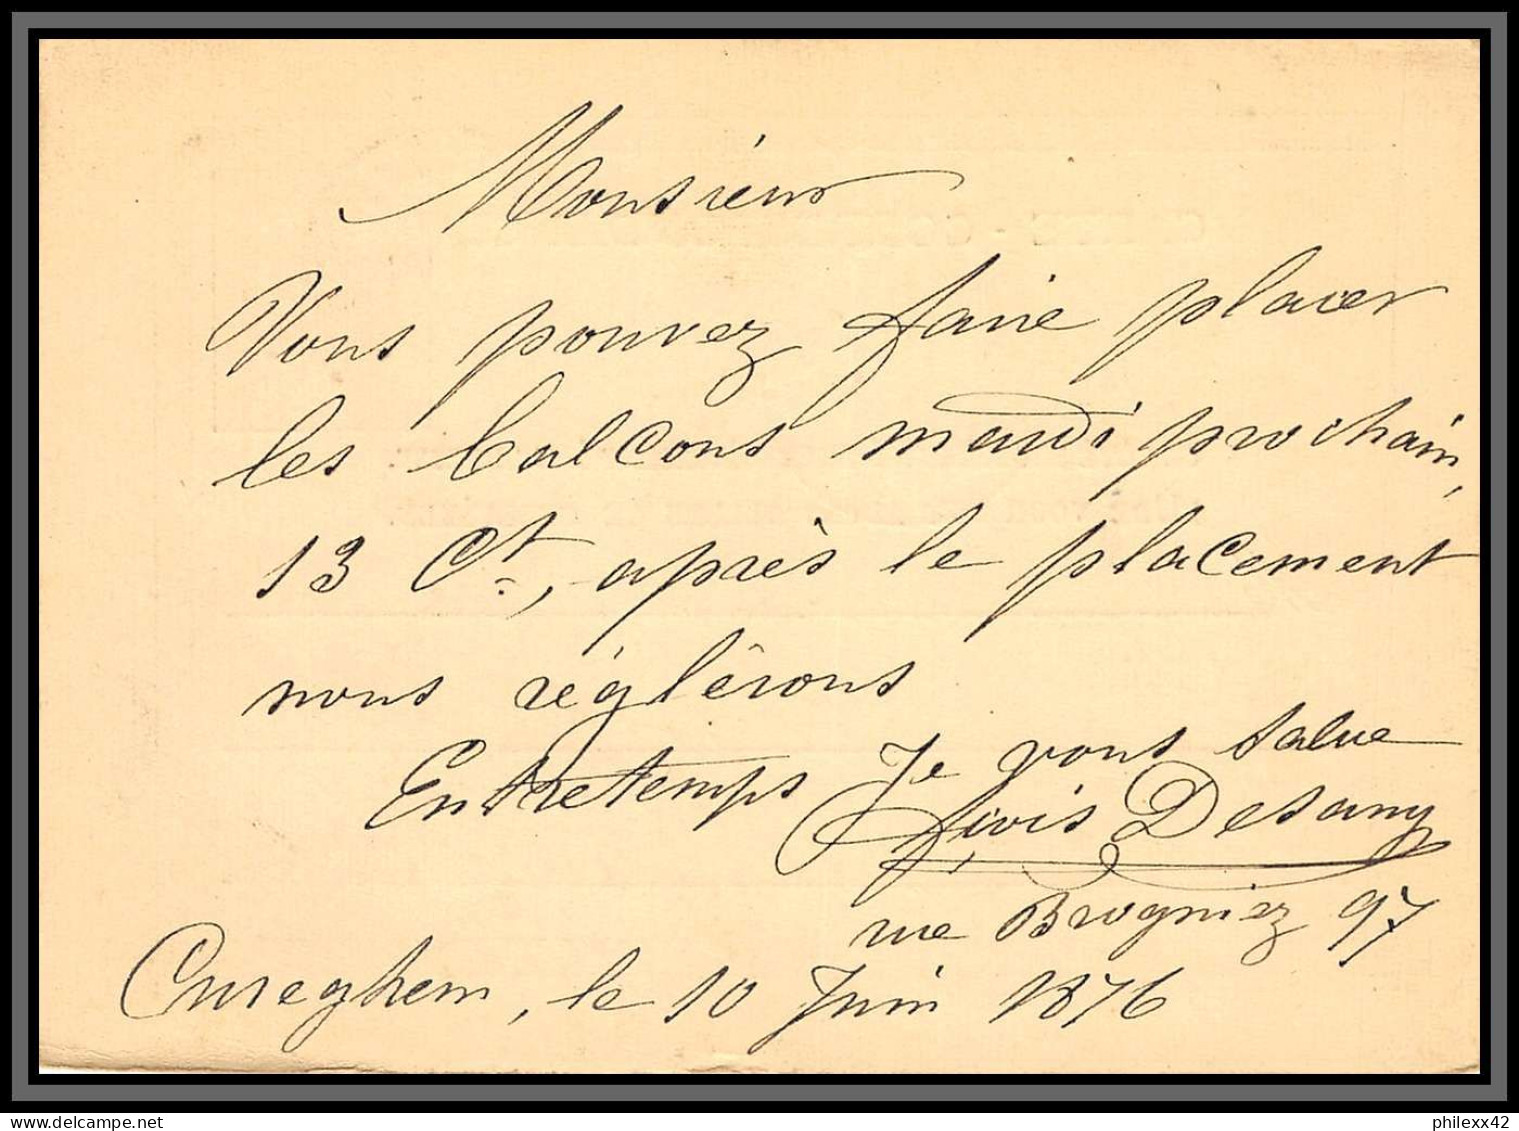 Monsieur
Vous pouvez faire placer
les balcons mardi prochain,
13 Ct, après le placement
nous réglêrons
Entretemps Je vous salue
Desany
rue Brogniez 97
Cureghem, le 10 Juin 1876
philexx42